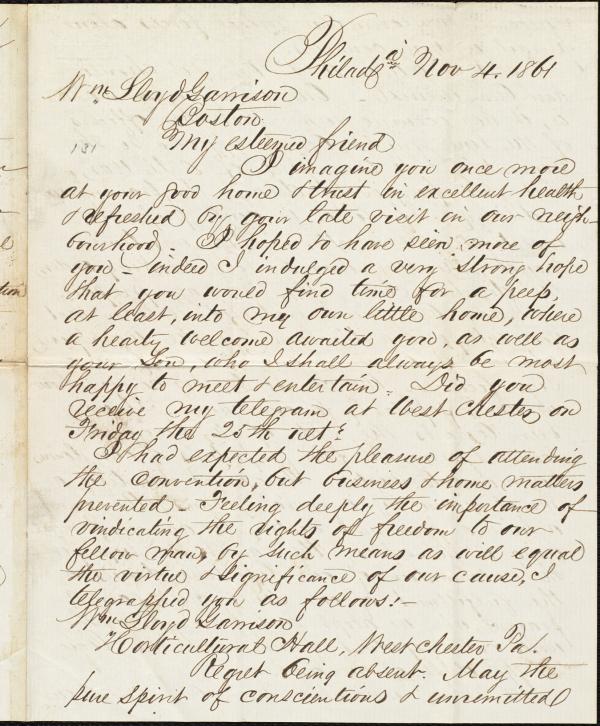 Philada Nov 4. 1861
Wm Lloyd Garrison
Boston.
131
My esteemed friend
I imagine you once more
at your good home & trust in excellent health
& refreshed by your late visit in our neigh-
bourhood. I hoped to have seen more of
you - indeed I indulged a very strong hope
that you would find time for a peep,
at least, into my own little home, where
a hearty welcome awaited you, as well as
your Son, who I shall always be most
happy to meet & entertain. Did you
receive my telegram at West Chester on
Friday the 25th
I had expected the pleasure of attending
the Convention, but business & home matters
prevented - Feeling deeply the importance of
vindicating the rights of freedom to our
fellow man, by such means as will equal
the virtue & significance of our cause, I
telegraphed you as follows:-
Wm Lloyd Garrison
Horticultural Hall, West Chester Pa.
Regret being absent. May the
pure spirit of conscientious & unremitted